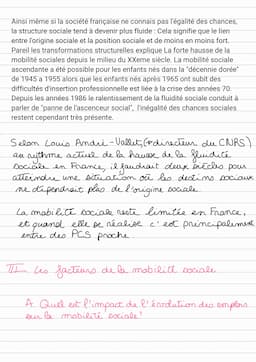 Ainsi même si la société française ne connais pas l'égalité des chances,
la structure sociale tend à devenir plus fluide : Cela signifie que le lien
entre l'origine sociale et la position sociale et de moins en moins fort.
Pareil les transformations structurelles explique La forte hausse de la
mobilité sociales depuis le milieu du XXeme siècle. La mobilité sociale
ascendante a été possible pour les enfants nés dans la "décennie dorée"
de 1945 a 1955 alors que les enfants nés après 1965 ont subit des
difficultés d'insertion professionnelle est liée à la crise des années 70.
Depuis les années 1986 le ralentissement de la fluidité sociale conduit à
parler de "panne de l'ascenceur social", l'inégalité des chances sociales
restent cependant très présente.
Selon Louis André-Vallet, (directeur du CNRS)
au rythme actuel de la hausse de la fluidité
sociale en France, il faudrait deux siècles pour
atteindre une situation où les destins sociaux
ne dépendrait plus de l'origine sociale.
La mobilité sociale reste limitée en France,
et quand elle se réalise c'est principalement
entre des PCS proche
III - Les facteurs de la mobilité sociale
A. Quel est l'impact de l'évolution des emplois
sur la mobilité sociale?